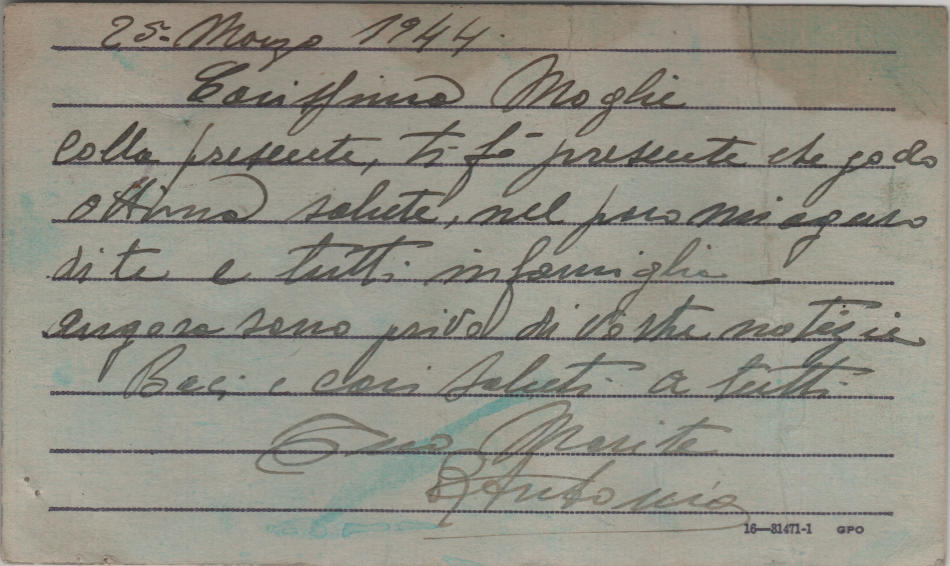 25- Marzo 1944.
Carissima Moglie
colla presente, ti fò presente che godo
ottima salute, nel paro mi aguro
di te e tutti infamiglia -
angora sono privo di vostre notizie
Baci e cari saluti a tutti
Tuo Marito
Antonio
16—31471-1 GPO